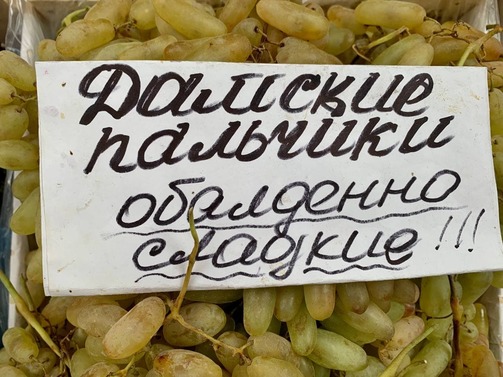 Дамские
пальчики
обалденно
сладкие!!!